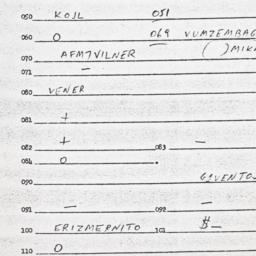 050 KOJL 051
060 O 069 VUMZEMBAG
070 AFM7VILNER ( ) MIKA
071 —
080 VENER
081 +
082 + 083 —
084 O .
090 GIVENTO
091 — 092 —
100 ERIZMERNITO 101 $—
110 O